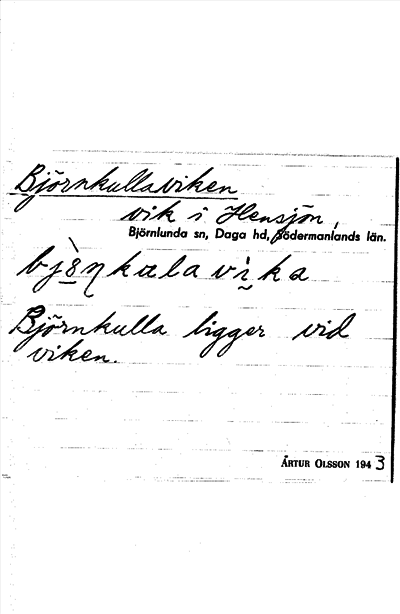 Björnkullaviken
vik i Hensjön,
Björnlunda sn, Daga hd, Södermanlands län.
Björnkulla ligger vid
viken.
ÅRTUR OLSSON 1943